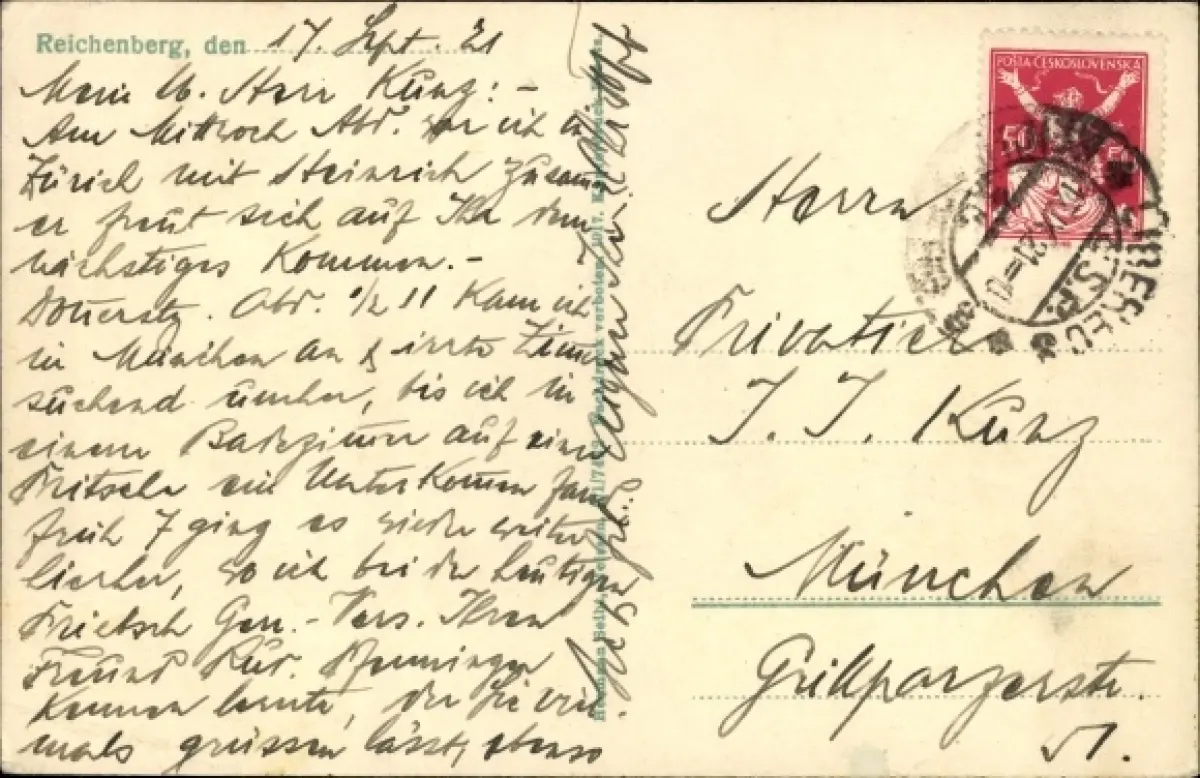 Reichenberg, den 17. Sept. 21
Mein lb. Herr Kunz: -
Am Mittwoch Abd. war ich in
Zürich mit Steinrich zusam
er freut sich auf Ihr dem
nächstiges Kommen. -
Donerstg. Abd. 1/2 11 kam ich
in München an & irrte Zimer
suchend umher, bis ich in
einem Badezimer auf einer
Pritsche ein Unterkomen fand
früh 7 ging es wieder weiter
hierher, wo ich bei der heutigen
Gen.-Vers. Ihren
Freund Rud. Pfenninger
kennen lernte, der Sie viel
mals grüssen lässt, ebenso
POŠTA ČESKOSLOVENSKÁ
50
Č.S.P.
Herrn
Privatier
J. J. Kunz
München
Grillparzerstr.